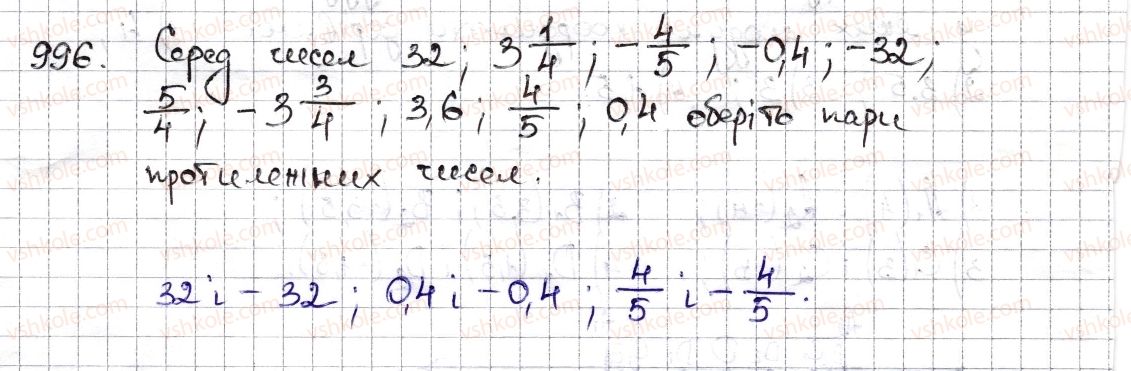 996. Серед чисел 32; 3 1/4; -4/5; -0,4; -32;
5/4; -3 3/4; 3,6; 4/5; 0,4 оберіть пари
протилежних чисел.
32 і - 32; 0,4 і - 0,4; 4/5 і - 4/5.